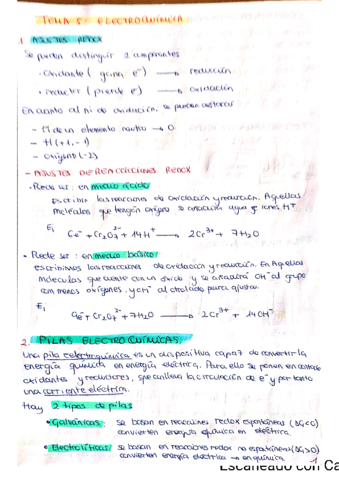 TEMA 5: ELECTROQUÍMICA
1. AJUSTES REDOX
Se pueden distinguir 2 componentes
· Oxidante (gana e⁻) → reducción
· reductor (pierde e⁻) → oxidación
En cuanto al nº de oxidación, se pueden destacar
- Nº de un elemento neutro → 0
- H (+1, -1)
- Oxígeno (-2)
- AJUSTES DE REACCIONES REDOX
· Redox: en medio ácido
Escribir las reacciones de oxidación y reducción. Aquellas
moléculas que tengan oxígeno se añadirán agua y iones H⁺
Ej
6e⁻ + Cr₂O₇²⁻ + 14H⁺ → 2Cr³⁺ + 7H₂O
· Redox: en medio básico
escribimos las reacciones de oxidación y reducción. En Aquellas
moléculas que cuente con un óxido y se añadirá OH⁻ al grupo
con menos oxígenos, y OH⁻ al otro lado para ajustar.
Ej
6e⁻ + Cr₂O₇²⁻ + 7H₂O → 2Cr³⁺ + 14OH⁻
2. PILAS ELECTROQUÍMICAS
Una pila electroquímica es un dispositiva capaz de convertir la
energía química en energía eléctrica. Para ello se ponen en contacto
oxidantes y reductores, que conlleva la circulación de e⁻ y por tanto
una corriente eléctrica.
Hay 2 tipos de pilas
· Galvánicas: se basan en reacciones redox espontáneas (ΔG<0)
convierten energía química en eléctrica.
· Electrolíticas: se basan en reacciones redox no espontáneas (ΔG>0)
convierten energía eléctrica → en química
1
Escaneado con Ca